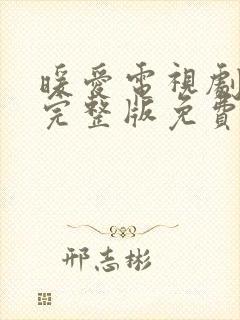 暖愛電視劇
完整版免費
邢志彬